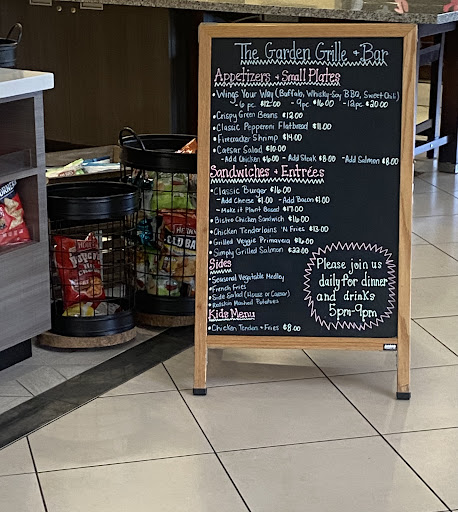 The Garden Grille + Bar
Appetizers + Small Plates
• Wings Your Way (Buffalo, Whisky-Soy BBQ, Sweet Chili)
- 6 pc $12.00 - 9pc $16.00 - 12pc $20.00
• Crispy Green Beans $12.00
• Classic Pepperoni Flatbread $11.00
• Firecracker Shrimp $14.00
• Caesar Salad $10.00
- Add Chicken $6.00 - Add Steak $8.00 - Add Salmon $8.00
Sandwiches + Entrées
• Classic Burger $16.00
- Add Cheese $1.00 - Add Bacon $1.00
- Make it Plant Based $17.00
• Bistro Chicken Sandwich $16.00
• Chicken Tenderloins 'N Fries $13.00
• Grilled Veggie Primavera $16.00
• Simply Grilled Salmon $22.00
Sides
• Seasonal Vegetable Medley
• French Fries
• Side Salad (House or Caesar)
• Redskin Mashed Potatoes
Kids Menu
• Chicken Tenders + Fries $8.00
Please join us
daily for dinner
and drinks
5pm-9pm